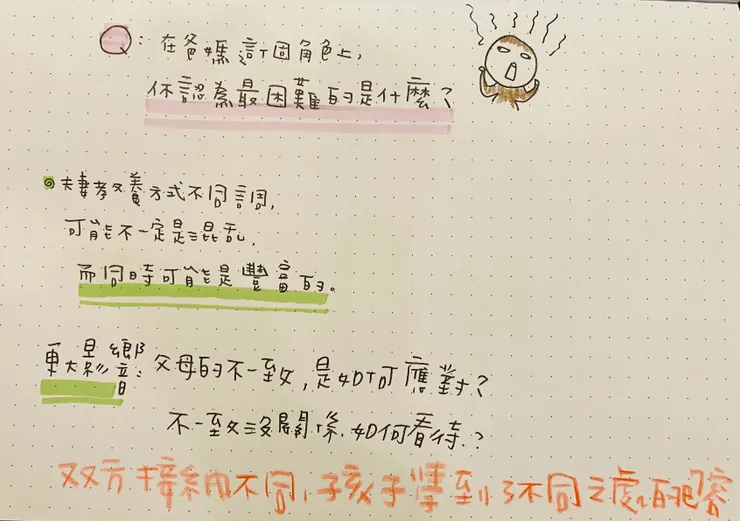 Q:在爸媽這個角色上,
你認為最困難的是什麼?
夫妻教養方式不同調,
可能不一定是混亂.
而同時可能是豐富的。
更大影響:父母的不一致,是如何應對?
不一致沒關係.如何看待.?
双方接納不同,孩子學到了不同之處的